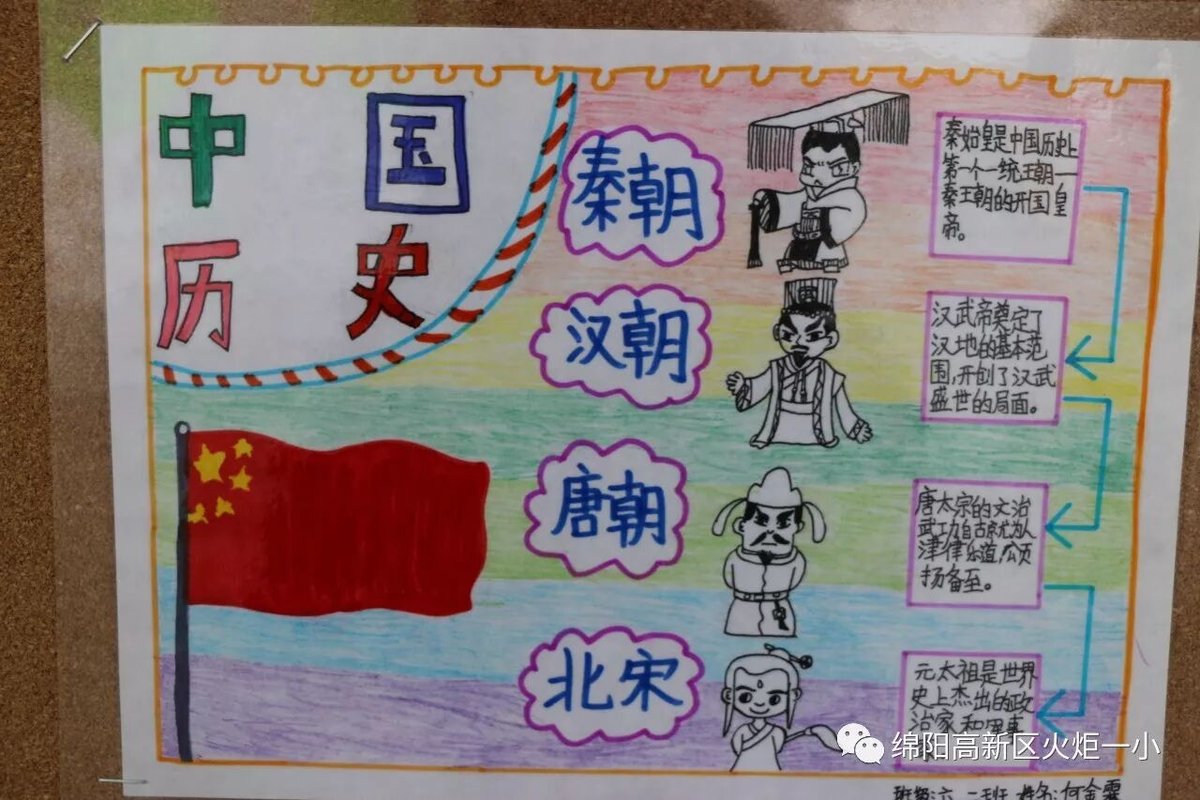 中国
历史
秦朝
秦始皇是中国历史上
第一个一统王朝—
秦王朝的开国皇
帝。
汉朝
汉武帝奠定了
汉地的基本范
围,开创了汉武
盛世的局面。
唐朝
唐太宗的文治
武功自古就尤为人
津津乐道,公页
扬备至。
北宋
元太祖是世界
史上杰出的政
治家和军事
绵阳高新区火炬一小
班级:六.二班 姓名:何金霏